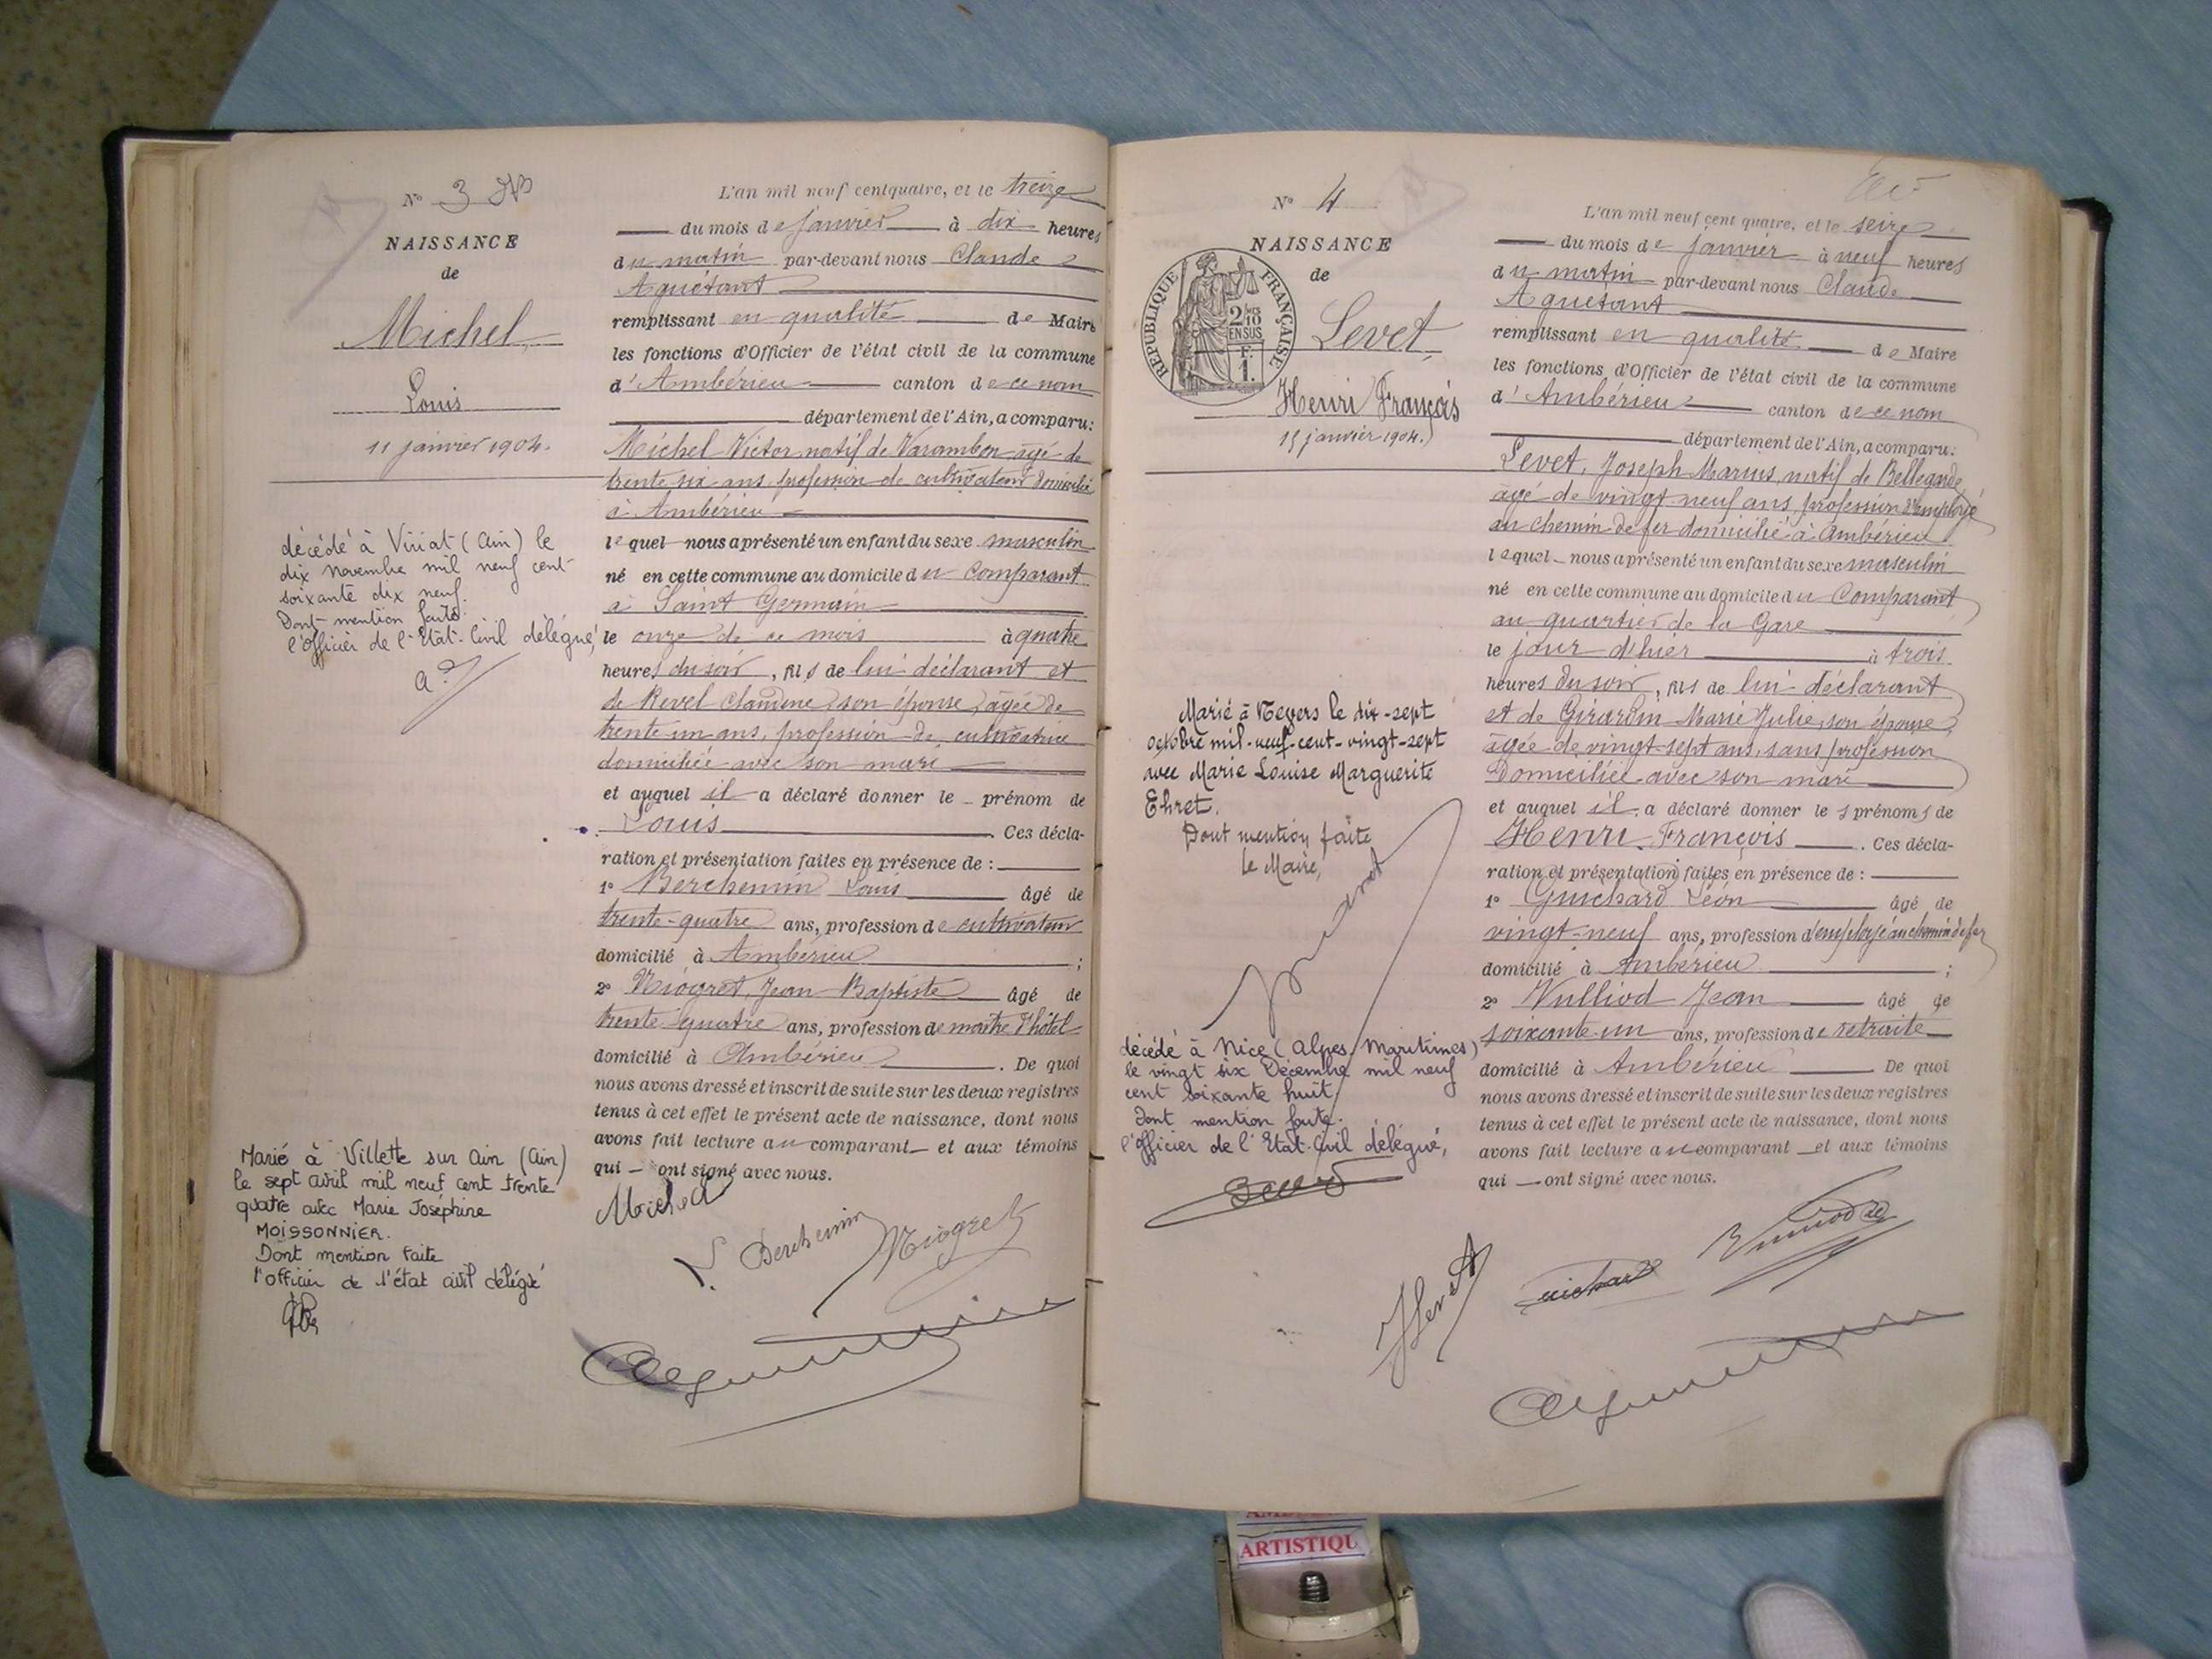 N° 3
NAISSANCE
de
Michel
Louis
11 janvier 1904.
décédé à Viriat (Ain) le
dix novembre mil neuf cent
soixante dix neuf.
Dont mention faite.
l'Officier de l'Etat-Civil délégué,
Marié à Villette sur Ain (Ain)
le sept avril mil neuf cent trente
quatre avec Marie Joséphine
MOISSONNIER.
Dont mention faite
l'officier de l'état civil délégué
L'an mil neuf cent quatre, et le treize
du mois de janvier à dix heures
du matin par-devant nous Claude
Aguétant
remplissant en qualité de Maire
les fonctions d'Officier de l'état civil de la commune
d'Ambérieu canton de ce nom
département de l'Ain, a comparu:
Michel Victor natif de Varambon âgé de
trente six ans profession de cultivateur domicilié
à Ambérieu
lequel nous a présenté un enfant du sexe masculin
né en cette commune au domicile du Comparant
à Saint Germain
le onze de ce mois à quatre
heures du soir, fils de lui déclarant et
de Revel Claudine son épouse, âgée de
trente un ans, profession de cultivatrice
domiciliée avec son mari
et auquel il a déclaré donner le prénom de
Louis . Ces décla-
ration et présentation faites en présence de :
1° Berchemin Louis âgé de
trente-quatre ans, profession de cultivateur
domicilié à Ambérieu ;
2° Niogret, Jean Baptiste âgé de
trente quatre ans, profession de maître d'hôtel
domicilié à Ambérieu . De quoi
nous avons dressé et inscrit de suite sur les deux registres
tenus à cet effet le présent acte de naissance, dont nous
avons fait lecture au comparant et aux témoins
qui ont signé avec nous.
Michel
L. Berchemin
Niogret
N° 4
NAISSANCE
de
RÉPUBLIQUE FRANÇAISE
2/10
EN SUS
F.
1.
Levet
Henri François
15 janvier 1904.
Marié à Nevers le dix-sept
octobre mil-neuf-cent-vingt-sept
avec Marie Louise Marguerite
Ehret.
Dont mention faite
Le Maire,
décédé à Nice (Alpes Maritimes)
le vingt six Décembre mil neuf
cent soixante huit
Dont mention faite.
l'Officier de l'Etat-Civil délégué,
L'an mil neuf cent quatre, et le seize
du mois de janvier à neuf heures
du matin par-devant nous Claude
Aguétant
remplissant en qualité de Maire
les fonctions d'Officier de l'état civil de la commune
d'Ambérieu canton de ce nom
département de l'Ain, a comparu:
Levet, Joseph Marius natif de Bellegarde
âgé de vingt neuf ans profession d'employé
au chemin de fer domicilié à Ambérieu
lequel nous a présenté un enfant du sexe masculin
né en cette commune au domicile du Comparant
au quartier de la Gare
le jour d'hier à trois
heures du soir, fils de lui déclarant
et de Girardin Marie Julie, son épouse
âgée de vingt-sept ans, sans profession
Domiciliée avec son mari
et auquel il a déclaré donner les prénoms de
Henri François . Ces décla-
ration et présentation faites en présence de :
1° Guichard Léon âgé de
vingt-neuf ans, profession d'employé au chemin de fer
domicilié à Ambérieu ;
2° Vulliod Jean âgé de
soixante-un ans, profession de retraité
domicilié à Ambérieu De quoi
nous avons dressé et inscrit de suite sur les deux registres
tenus à cet effet le présent acte de naissance, dont nous
avons fait lecture au comparant et aux témoins
qui ont signé avec nous.
ARTISTIQU